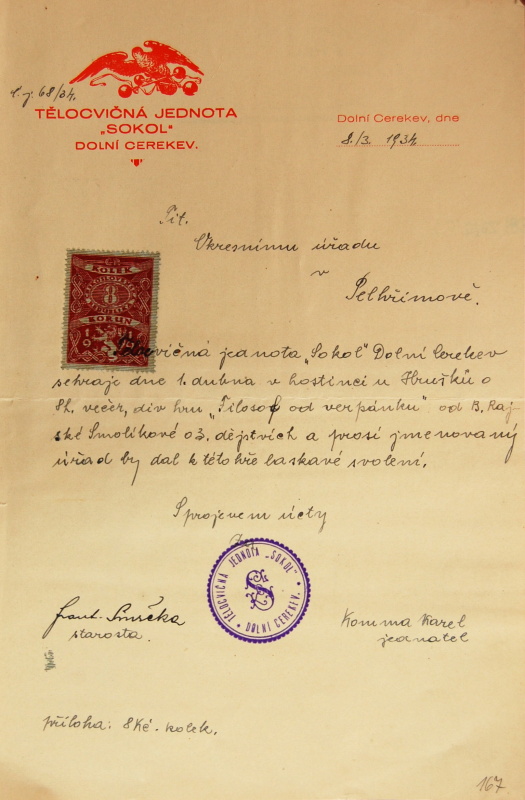 č. j. 68/34.
TĚLOCVIČNÁ JEDNOTA
„SOKOL"
DOLNÍ CEREKEV.
Dolní Cerekev, dne
8./3. 1934
Tit.
Okresnímu úřadu
v
Pelhřimově.
KOLEK
8
KORUN
Tělocvičná jednota „Sokol" Dolní Cerekev
sehraje dne 1. dubna v hostinci u Hrušků o
8h. večer, div hru „Filosof od verpánku" od B. Raj-
ské Smolíkové o 3. dějstvích a prosí jmenovaný
úřad by dal k této hře laskavé svolení.
S projevem úcty
TĚLOCVIČNÁ JEDNOTA „SOKOL"
DOLNÍ CEREKEV.
Frant. Smrčka
starosta.
Komma Karel
jednatel
příloha: 8 Kč. kolek.
167